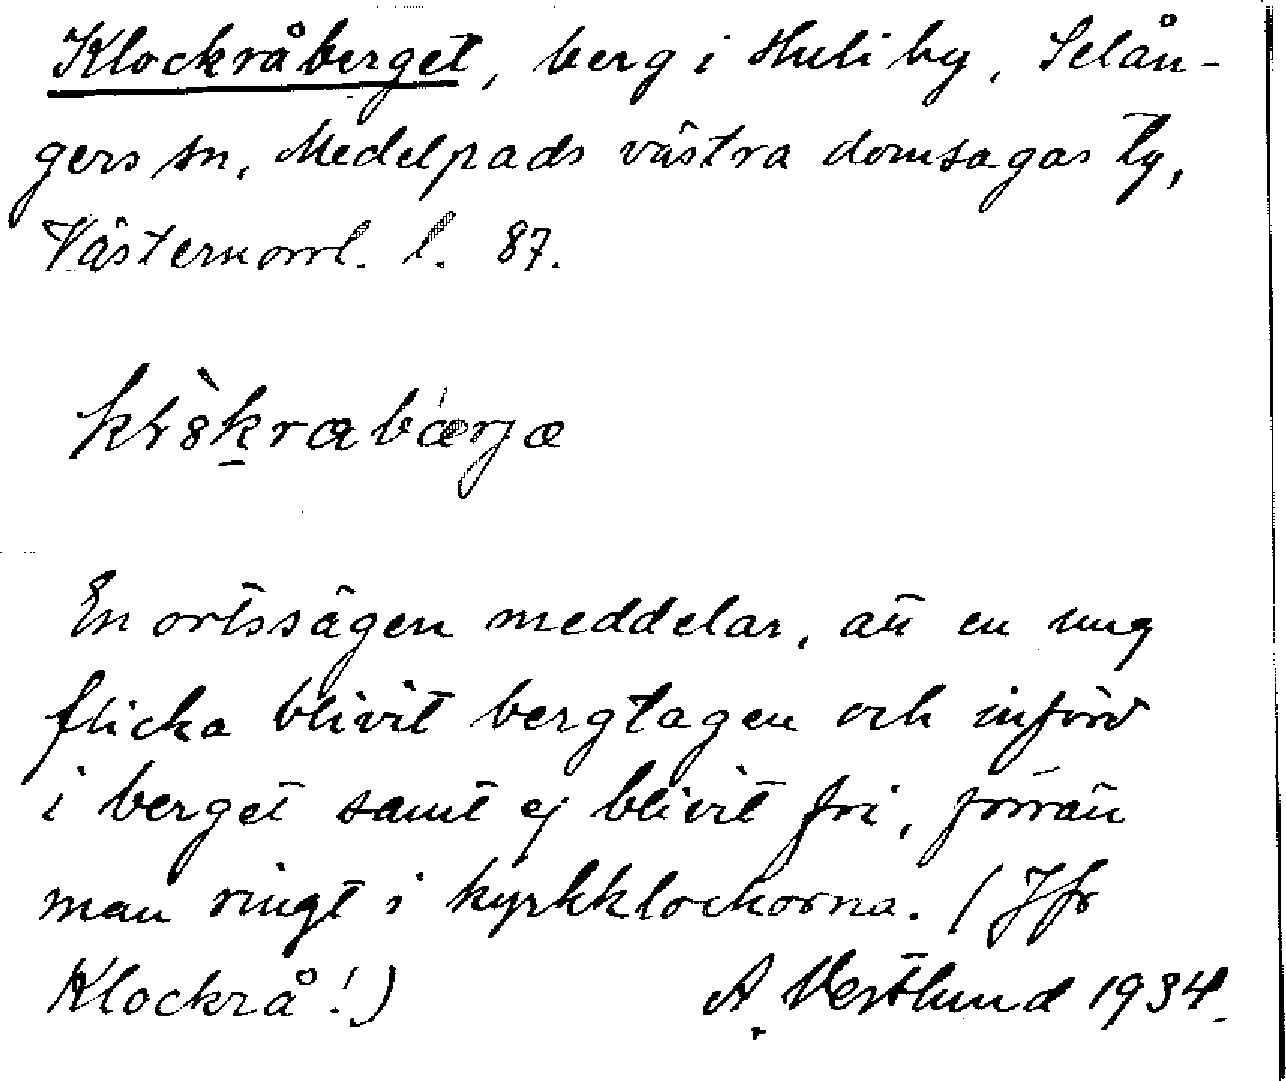 Klockråberget, berg i Huli by, Selån-
gers sn, Medelpads västra domsagas tg,
Västernorrl. l. 87.
En ortssägen meddelar, att en ung
flicka blivit bergtagen och införd
i berget samt ej blivit fri, förrän
man ringt i kyrkklockorna. (Jfr
Klockrå!) A. Vestlund 1934.